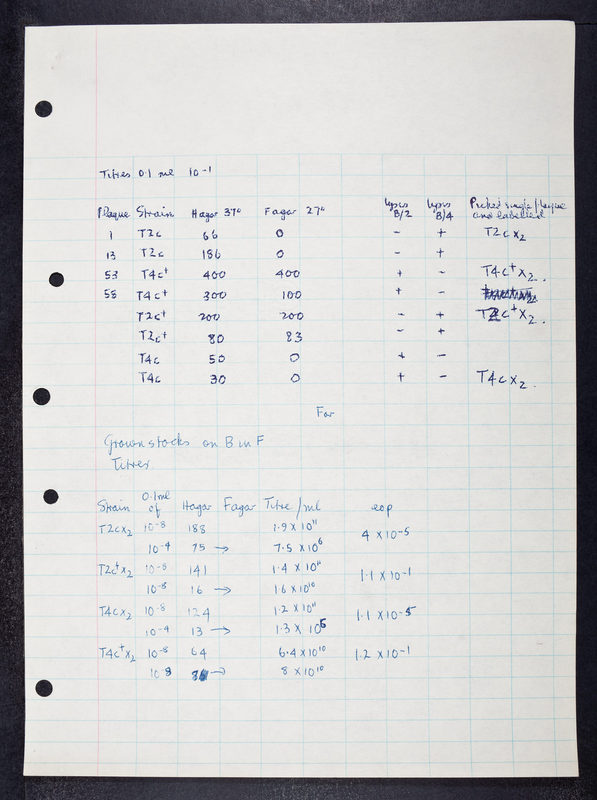 Titres 0.1 ml 10⁻¹
Plaque Strain Hagar 37° Fagar 27° Lysis B/2 Lysis B/4 Picked single plaque and labelled
1 T2c 66 0 - + T2cx₂
13 T2c 186 0 - +
53 T4c⁺ 400 400 + - T4c⁺x₂.
58 T4c⁺ 300 100 + -
T2c⁺ 200 200 - + T2c⁺x₂.
T2c⁺ 80 83 - +
T4c 50 0 + -
T4c 30 0 + - T4cx₂.
For
Grown stocks on B in F
Titres
Strain 0.1ml of Hagar Fagar Titre/ml eop
T2cx₂ 10⁻⁸ 188 1.9 x 10¹¹
4 x 10⁻⁵
10⁻⁴ 75 → 7.5 x 10⁶
T2c⁺x₂ 10⁻⁸ 141 1.4 x 10¹¹
1.1 x 10⁻¹
10⁻⁸ 16 → 1.6 x 10¹⁰
T4cx₂ 10⁻⁸ 124 1.2 x 10¹¹
1.1 x 10⁻⁵
10⁻⁴ 13 → 1.3 x 10⁶
T4c⁺x₂ 10⁻⁸ 64 6.4 x 10¹⁰
1.2 x 10⁻¹
10⁻⁸ → 8 x 10¹⁰